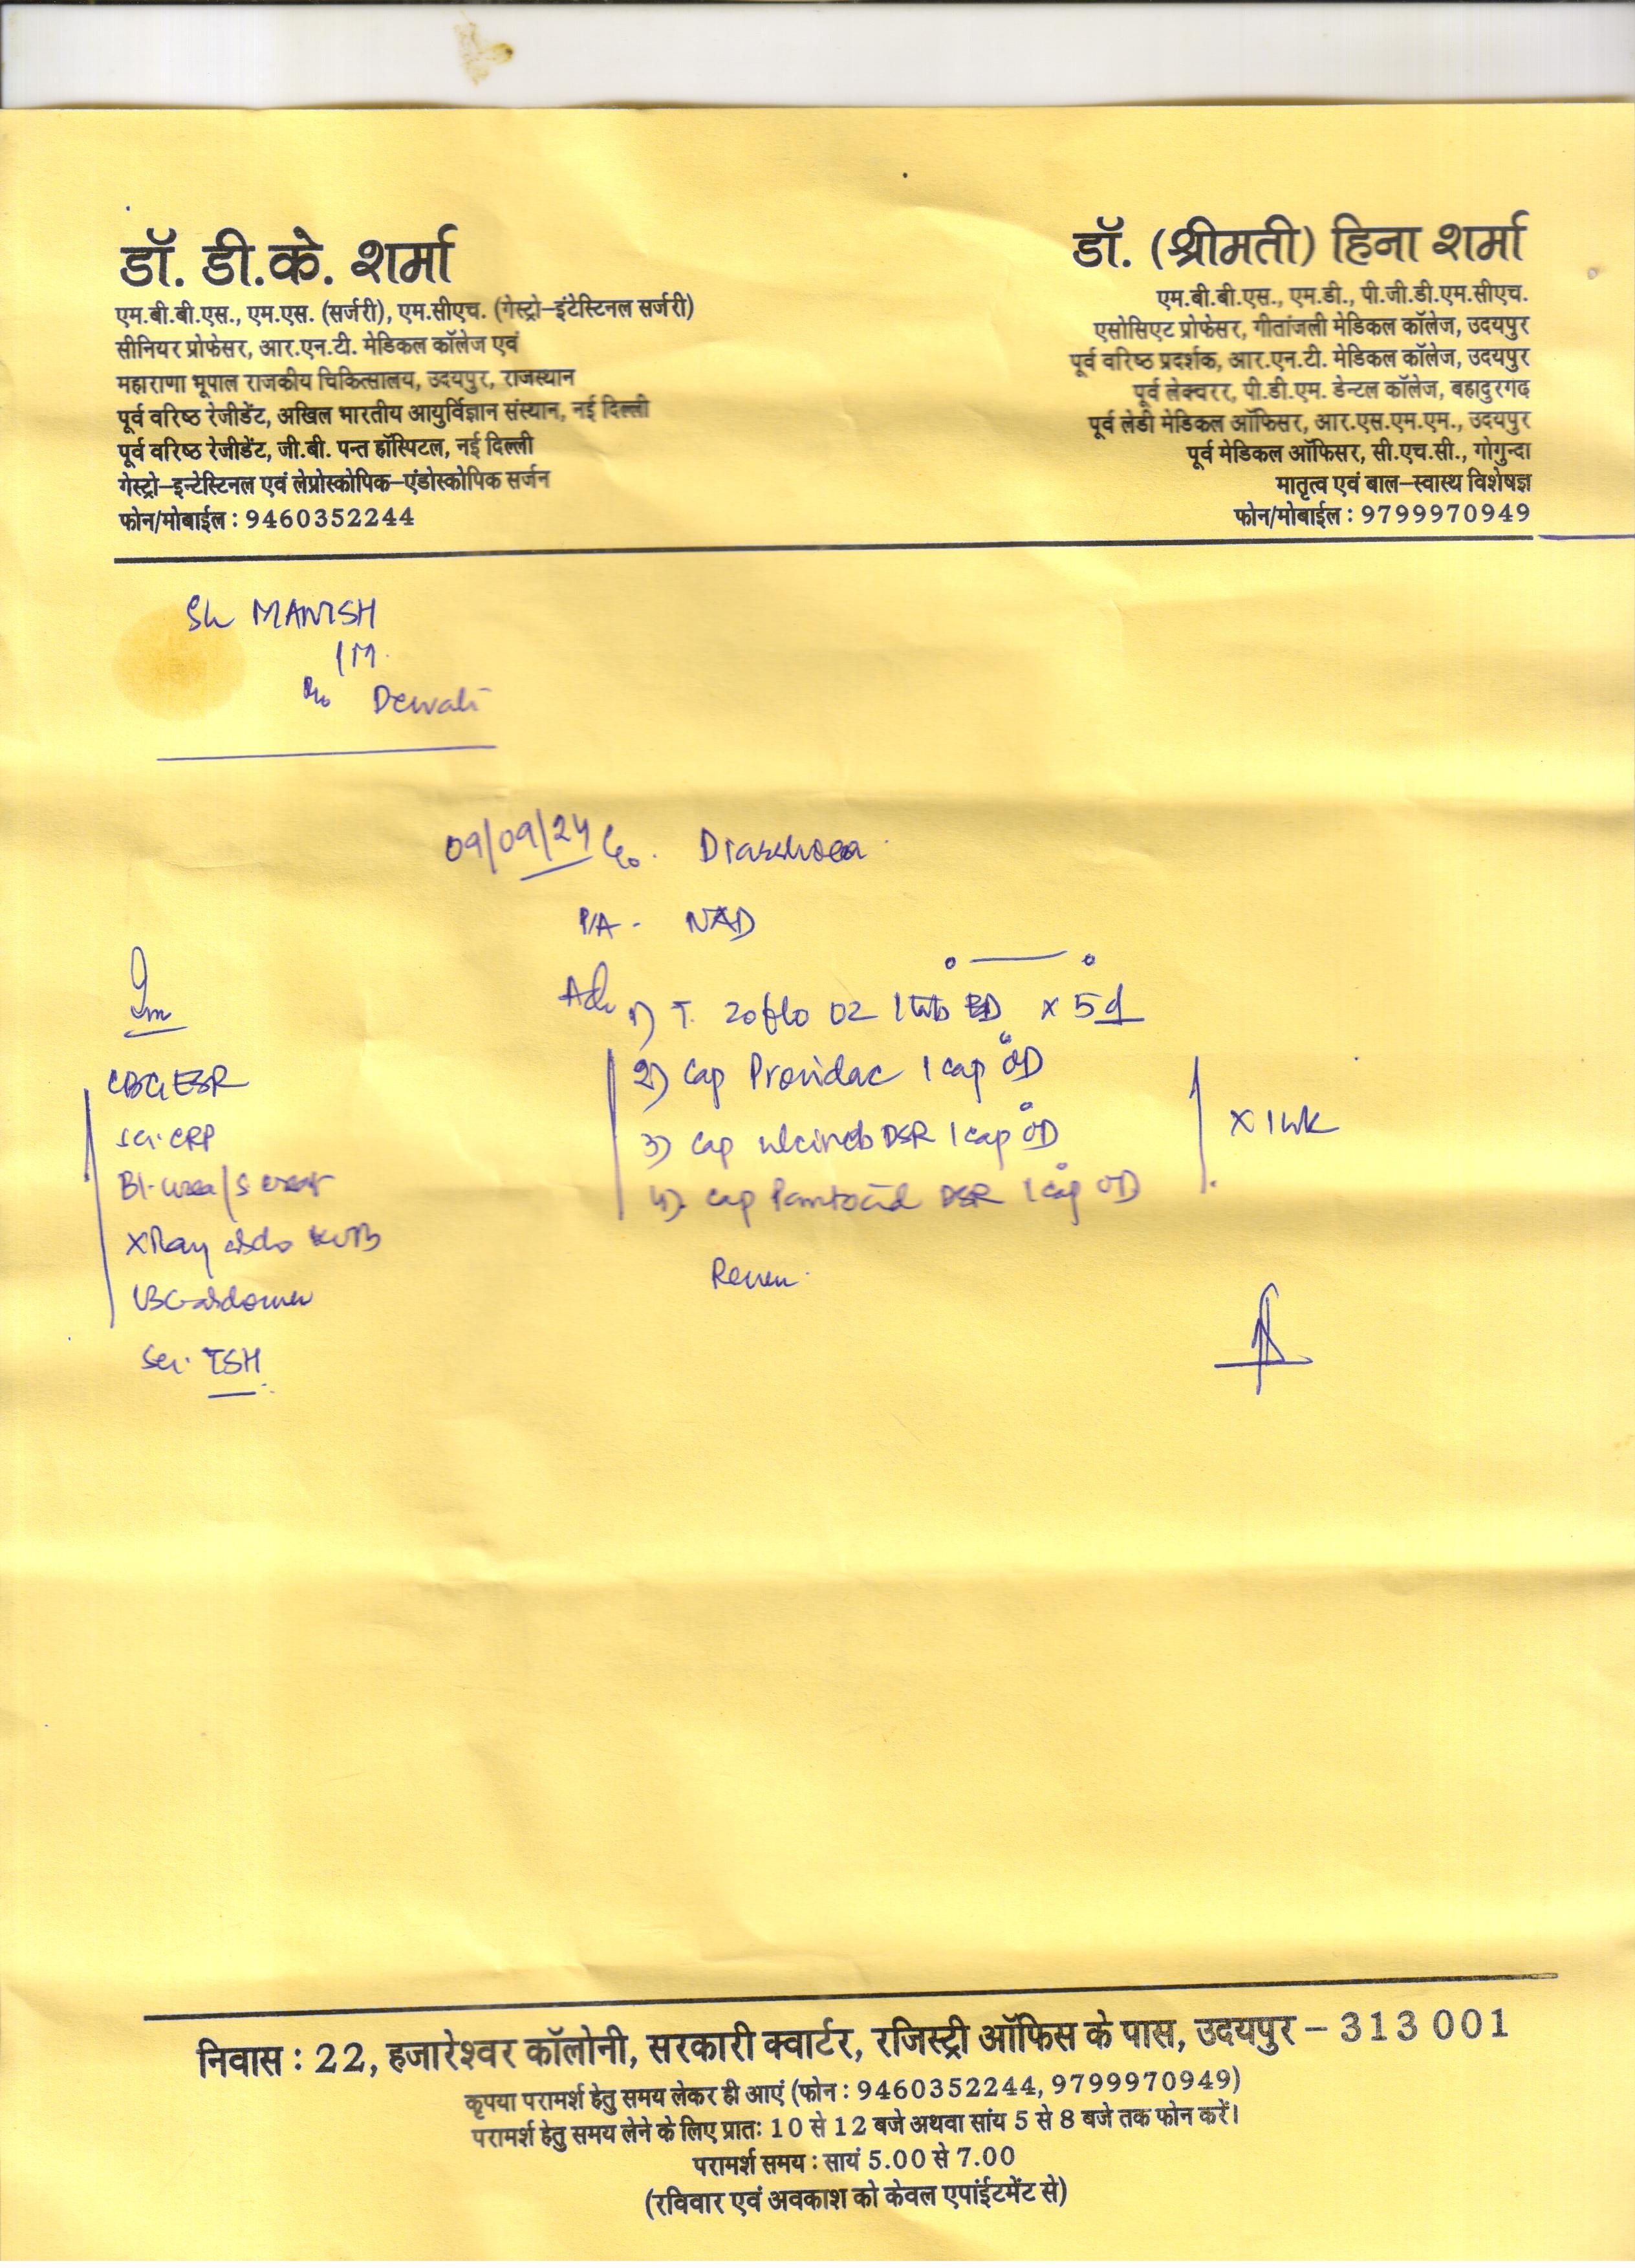 डॉ. डी.के. शर्मा
एम.बी.बी.एस., एम.एस. (सर्जरी), एम.सीएच. (गेस्ट्रो-इंटेस्टिनल सर्जरी)
सीनियर प्रोफेसर, आर.एन.टी. मेडिकल कॉलेज एवं
महाराणा भूपाल राजकीय चिकित्सालय, उदयपुर, राजस्थान
पूर्व वरिष्ठ रेजीडेंट, अखिल भारतीय आयुर्विज्ञान संस्थान, नई दिल्ली
पूर्व वरिष्ठ रेजीडेंट, जी.बी. पन्त हॉस्पिटल, नई दिल्ली
गेस्ट्रो-इन्टेस्टिनल एवं लेप्रोस्कोपिक-एंडोस्कोपिक सर्जन
फोन/मोबाईल : 9460352244
डॉ. (श्रीमती) हिना शर्मा
एम.बी.बी.एस., एम.डी., पी.जी.डी.एम.सीएच.
एसोसिएट प्रोफेसर, गीतांजली मेडिकल कॉलेज, उदयपुर
पूर्व वरिष्ठ प्रदर्शक, आर.एन.टी. मेडिकल कॉलेज, उदयपुर
पूर्व लेक्चरर, पी.डी.एम. डेन्टल कॉलेज, बहादुरगढ़
पूर्व लेडी मेडिकल ऑफिसर, आर.एस.एम.एम., उदयपुर
पूर्व मेडिकल ऑफिसर, सी.एच.सी., गोगुन्दा
मातृत्व एवं बाल-स्वास्थ विशेषज्ञ
फोन/मोबाईल : 9799970949
Sh MANISH
/M.
R/o Dewali
09/09/24 C/o. Diarrhoea
P/A - NAD
Adv 1) T. Zoflo OZ 1 tab BD x 5d
2) Cap Providac 1 cap OD
3) Cap DSR 1 cap OD
4). Cap Pantocid DSR 1 cap OD
x 1 wk
Review.
Inv
CBC, ESR
Ser. CRP
Bl. urea/S creat
X Ray abdo KUB
USG abdomen
Ser. TSH
निवास : 22, हजारेश्वर कॉलोनी, सरकारी क्वार्टर, रजिस्ट्री ऑफिस के पास, उदयपुर - 313 001
कृपया परामर्श हेतु समय लेकर ही आएं (फोन : 9460352244, 9799970949)
परामर्श हेतु समय लेने के लिए प्रातः 10 से 12 बजे अथवा सांय 5 से 8 बजे तक फोन करें।
परामर्श समय : सायं 5.00 से 7.00
(रविवार एवं अवकाश को केवल एपांईटमेंट से)